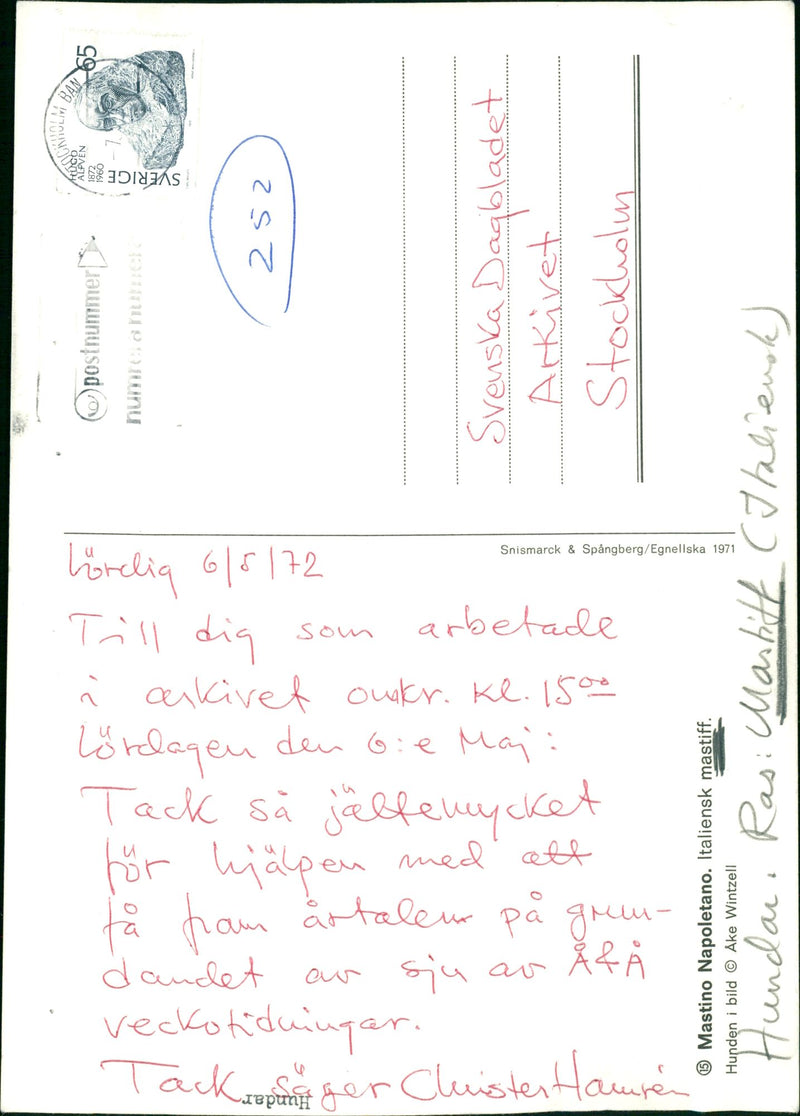 SVERIGE 65
HUGO
ALFVÉN
1872
1960
STOCKHOLM BAN
postnummer
numrera numret
252
Svenska Dagbladet
Arkivet
Stockholm
Snismarck & Spångberg/Egnellska 1971
Lördig 6/5/72
Till dig som arbetade
i arkivet omkr. kl. 15⁰⁰
Lördagen den 6:e Maj:
Tack så jättemycket
för hjälpen med att
få fram årtalen på grun-
dandet av sju av Å&Å
veckotidningar.
Tack säger Christer Hamrén
Hundar
⑮ Mastino Napoletano. Italiensk mastiff.
Hunden i bild © Åke Wintzell
Hundar. Ras: Mastiff (Italiensk)